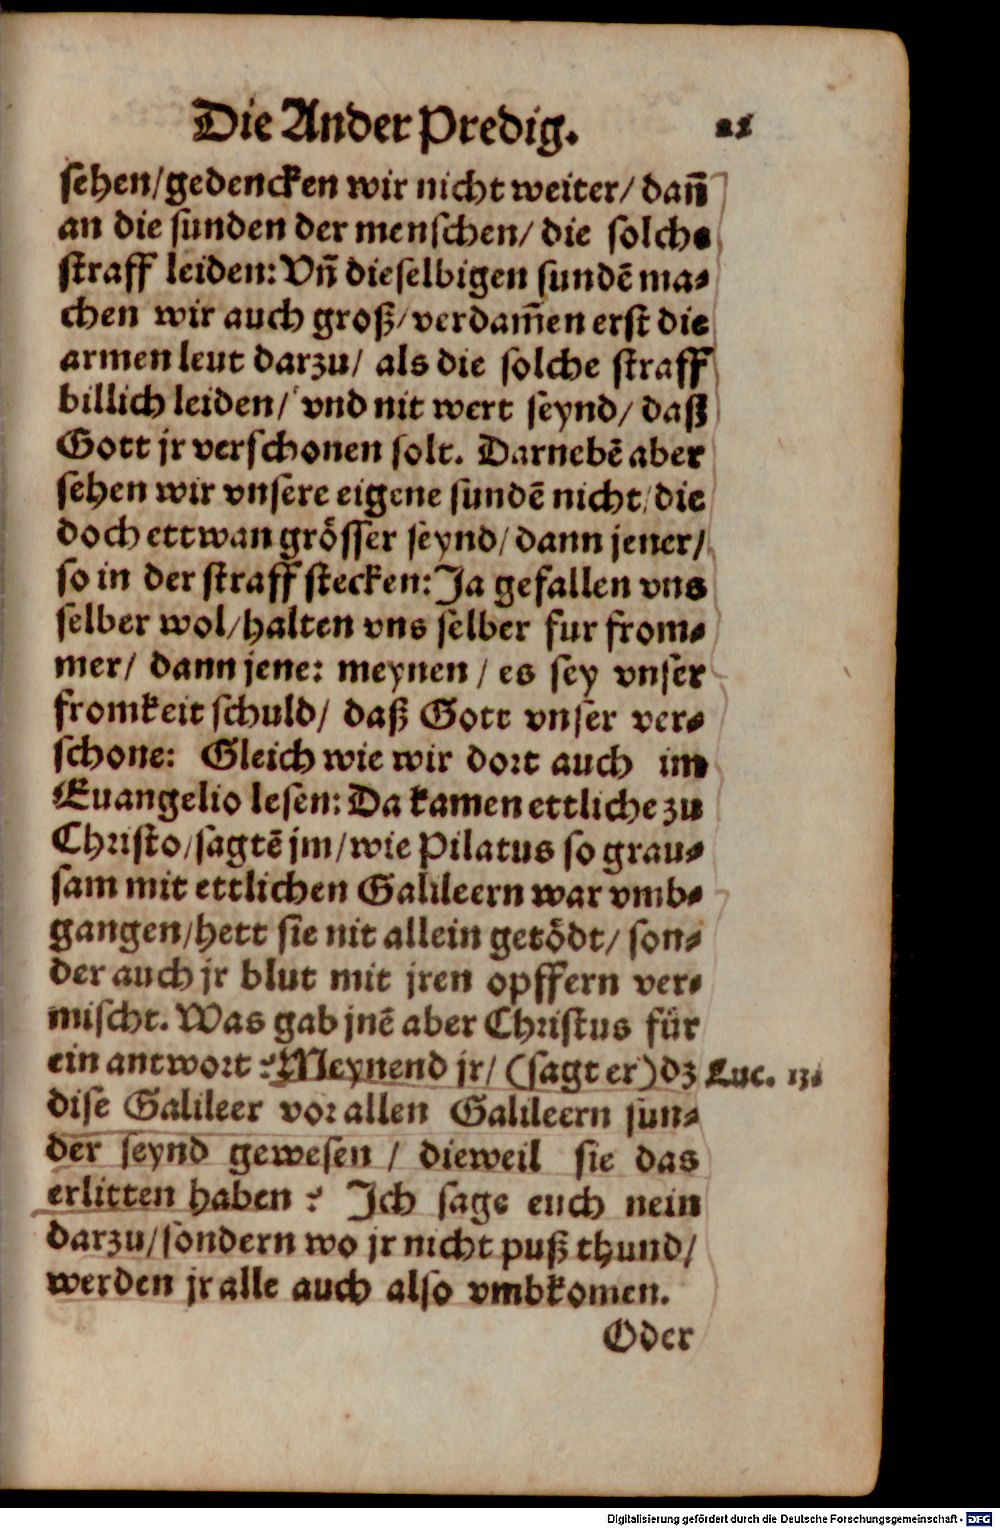 Die Ander Predig. 21
sehen/gedencken wir nicht weiter/ dañ
an die sunden der menschen/ die solche
straff leiden: Vñ dieselbigen sundẽ ma-
chen wir auch groß/verdam̃en erst die
armen leut darzu/ als die solche straff
billich leiden/ vnd nit wert seynd/ daß
Gott jr verschonen solt. Darnebẽ aber
sehen wir vnsere eigene sundẽ nicht/die
doch ettwan grösser seynd/ dann jener/
so in der straff stecken: Ja gefallen vns
selber wol/halten vns selber fur from-
mer/ dann jene: meynen / es sey vnser
fromkeit schuld/ daß Gott vnser ver-
schone: Gleich wie wir dort auch im
Euangelio lesen: Da kamen ettliche zu
Christo/sagtẽ jm/wie Pilatus so grau-
sam mit ettlichen Galileern war vmb-
gangen/hett sie nit allein getödt/ son-
der auch jr blut mit jren opffern ver-
mischt. Was gab jnẽ aber Christus für
ein antwort? Meynend jr/ (sagt er) dz Luc. 13.
dise Galileer vor allen Galileern sun-
der seynd gewesen / dieweil sie das
erlitten haben? Ich sage euch nein
darzu/sondern wo jr nicht puß thund/
werden jr alle auch also vmbkomen.
Oder
Digitalisierung gefördert durch die Deutsche Forschungsgemeinschaft - DFG